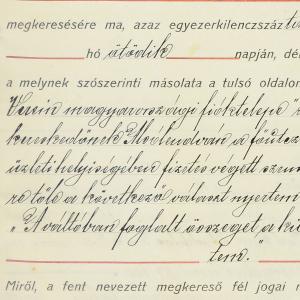 megkeresésére ma, azaz egyezerkilenczszáz
hó ötödik napján, dé
a melynek szószerinti másolata a tulsó oldalon
Verein magyarországi fióktelepe
kereskedőnek Mosdudván a főutcz
üzleti helyiségében fizetés végett szem
re tőle a következő választ nyertem
"A váltóban foglalt összeget a ki
tem."
Miről, a fent nevezett megkereső fél jogai m